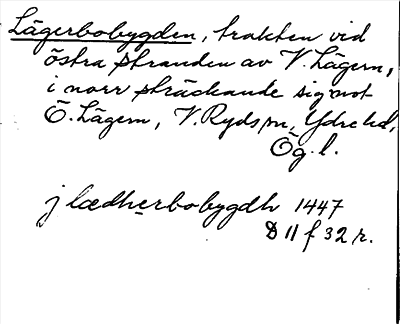 Lägerbobygden, trakten vid
östra stranden av V. Lägern,
i norr sträckande sig mot
Ö. Lägern, V. Ryds sn, Ydre hd,
Ög. l.
j lædherbobygdh 1447
D 11 f 32 r.